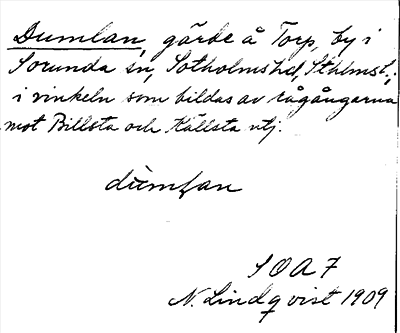 Dumlan, gärde å Torp, by i
Sorunda sn, Sotholms hd, Sthlms l.;
i vinkeln som bildas av rågångarna
mot Billsta och Källsta utj.
dùmlan
S O A 7
N. Lindqvist 1909